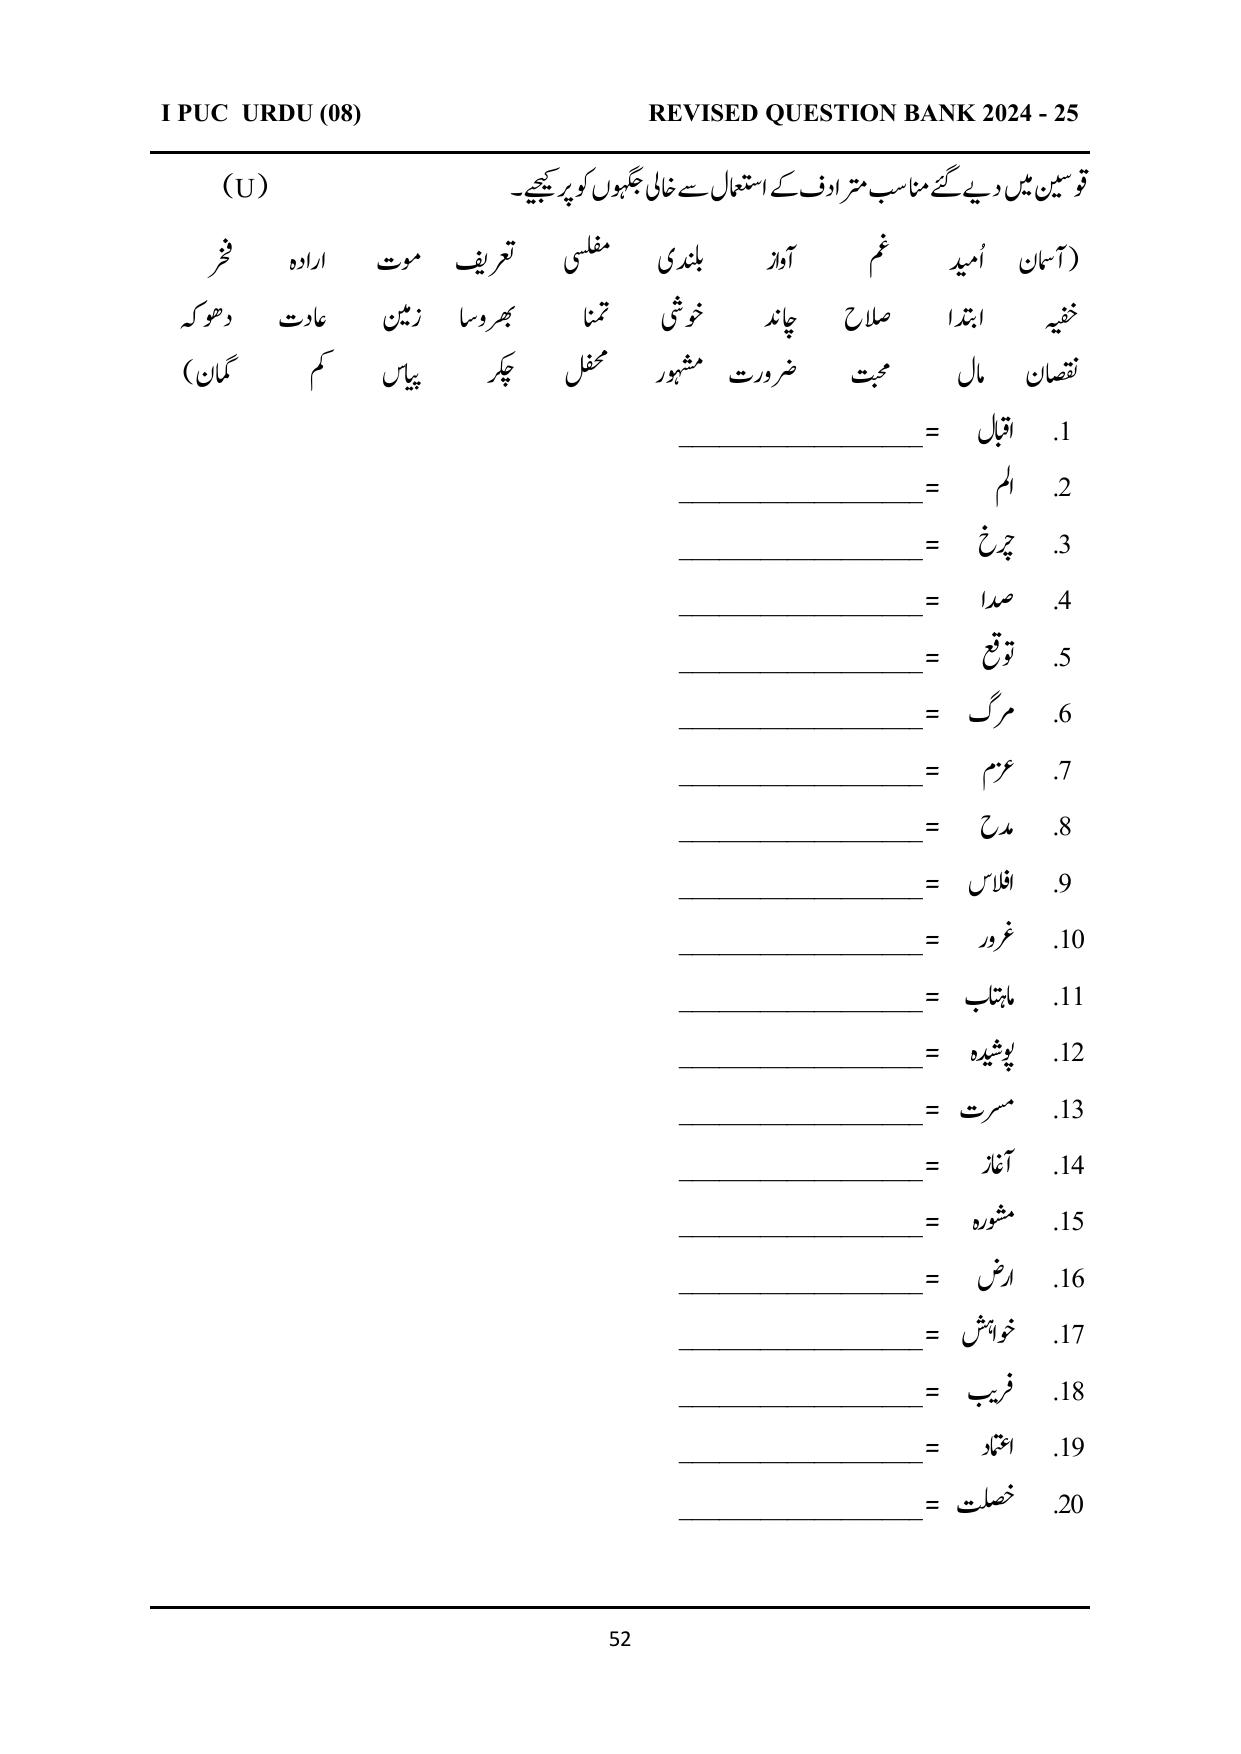 I PUC URDU (08) REVISED QUESTION BANK 2024 - 25
قوسین میں دیے گئے مناسب مترادف کے استعمال سے خالی جگہوں کو پر کیجیے۔ (U)
(آسمان اُمید غم آواز بلندی مفلسی تعریف موت ارادہ فخر
خفیہ ابتدا صلاح چاند خوشی تمنا بھروسا زمین عادت دھوکہ
نقصان مال محبت ضرورت مشہور محفل چکر پیاس کم گمان)
1. اقبال = __________________
2. الم = __________________
3. چرخ = __________________
4. صدا = __________________
5. توقع = __________________
6. مرگ = __________________
7. عزم = __________________
8. مدح = __________________
9. افلاس = __________________
10. غرور = __________________
11. ماہتاب = __________________
12. پوشیدہ = __________________
13. مسرت = __________________
14. آغاز = __________________
15. مشورہ = __________________
16. ارض = __________________
17. خواہش = __________________
18. فریب = __________________
19. اعتماد = __________________
20. خصلت = __________________
52